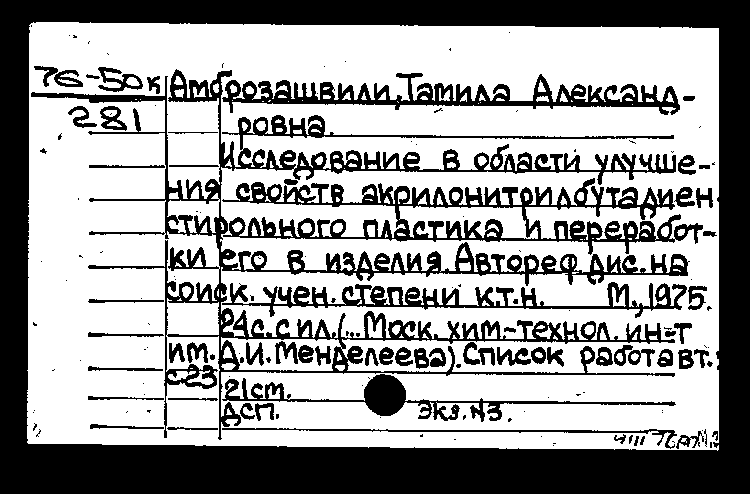 76-50к Амброзашвили, Тамила Александ-
281 ровна.
Исследование в области улучше-
ния свойств акрилонитрилбутадиен-
стирольного пластика и переработ-
ки его в изделия. Автореф. дис. на
соиск. учен. степени к.т.н. М., 1975.
24 с. с ил. (... Моск. хим.-технол. ин-т
им. Д.И. Менделеева). Список работ авт.:
с.23
21 ст.
ДСП. Экз. №3.